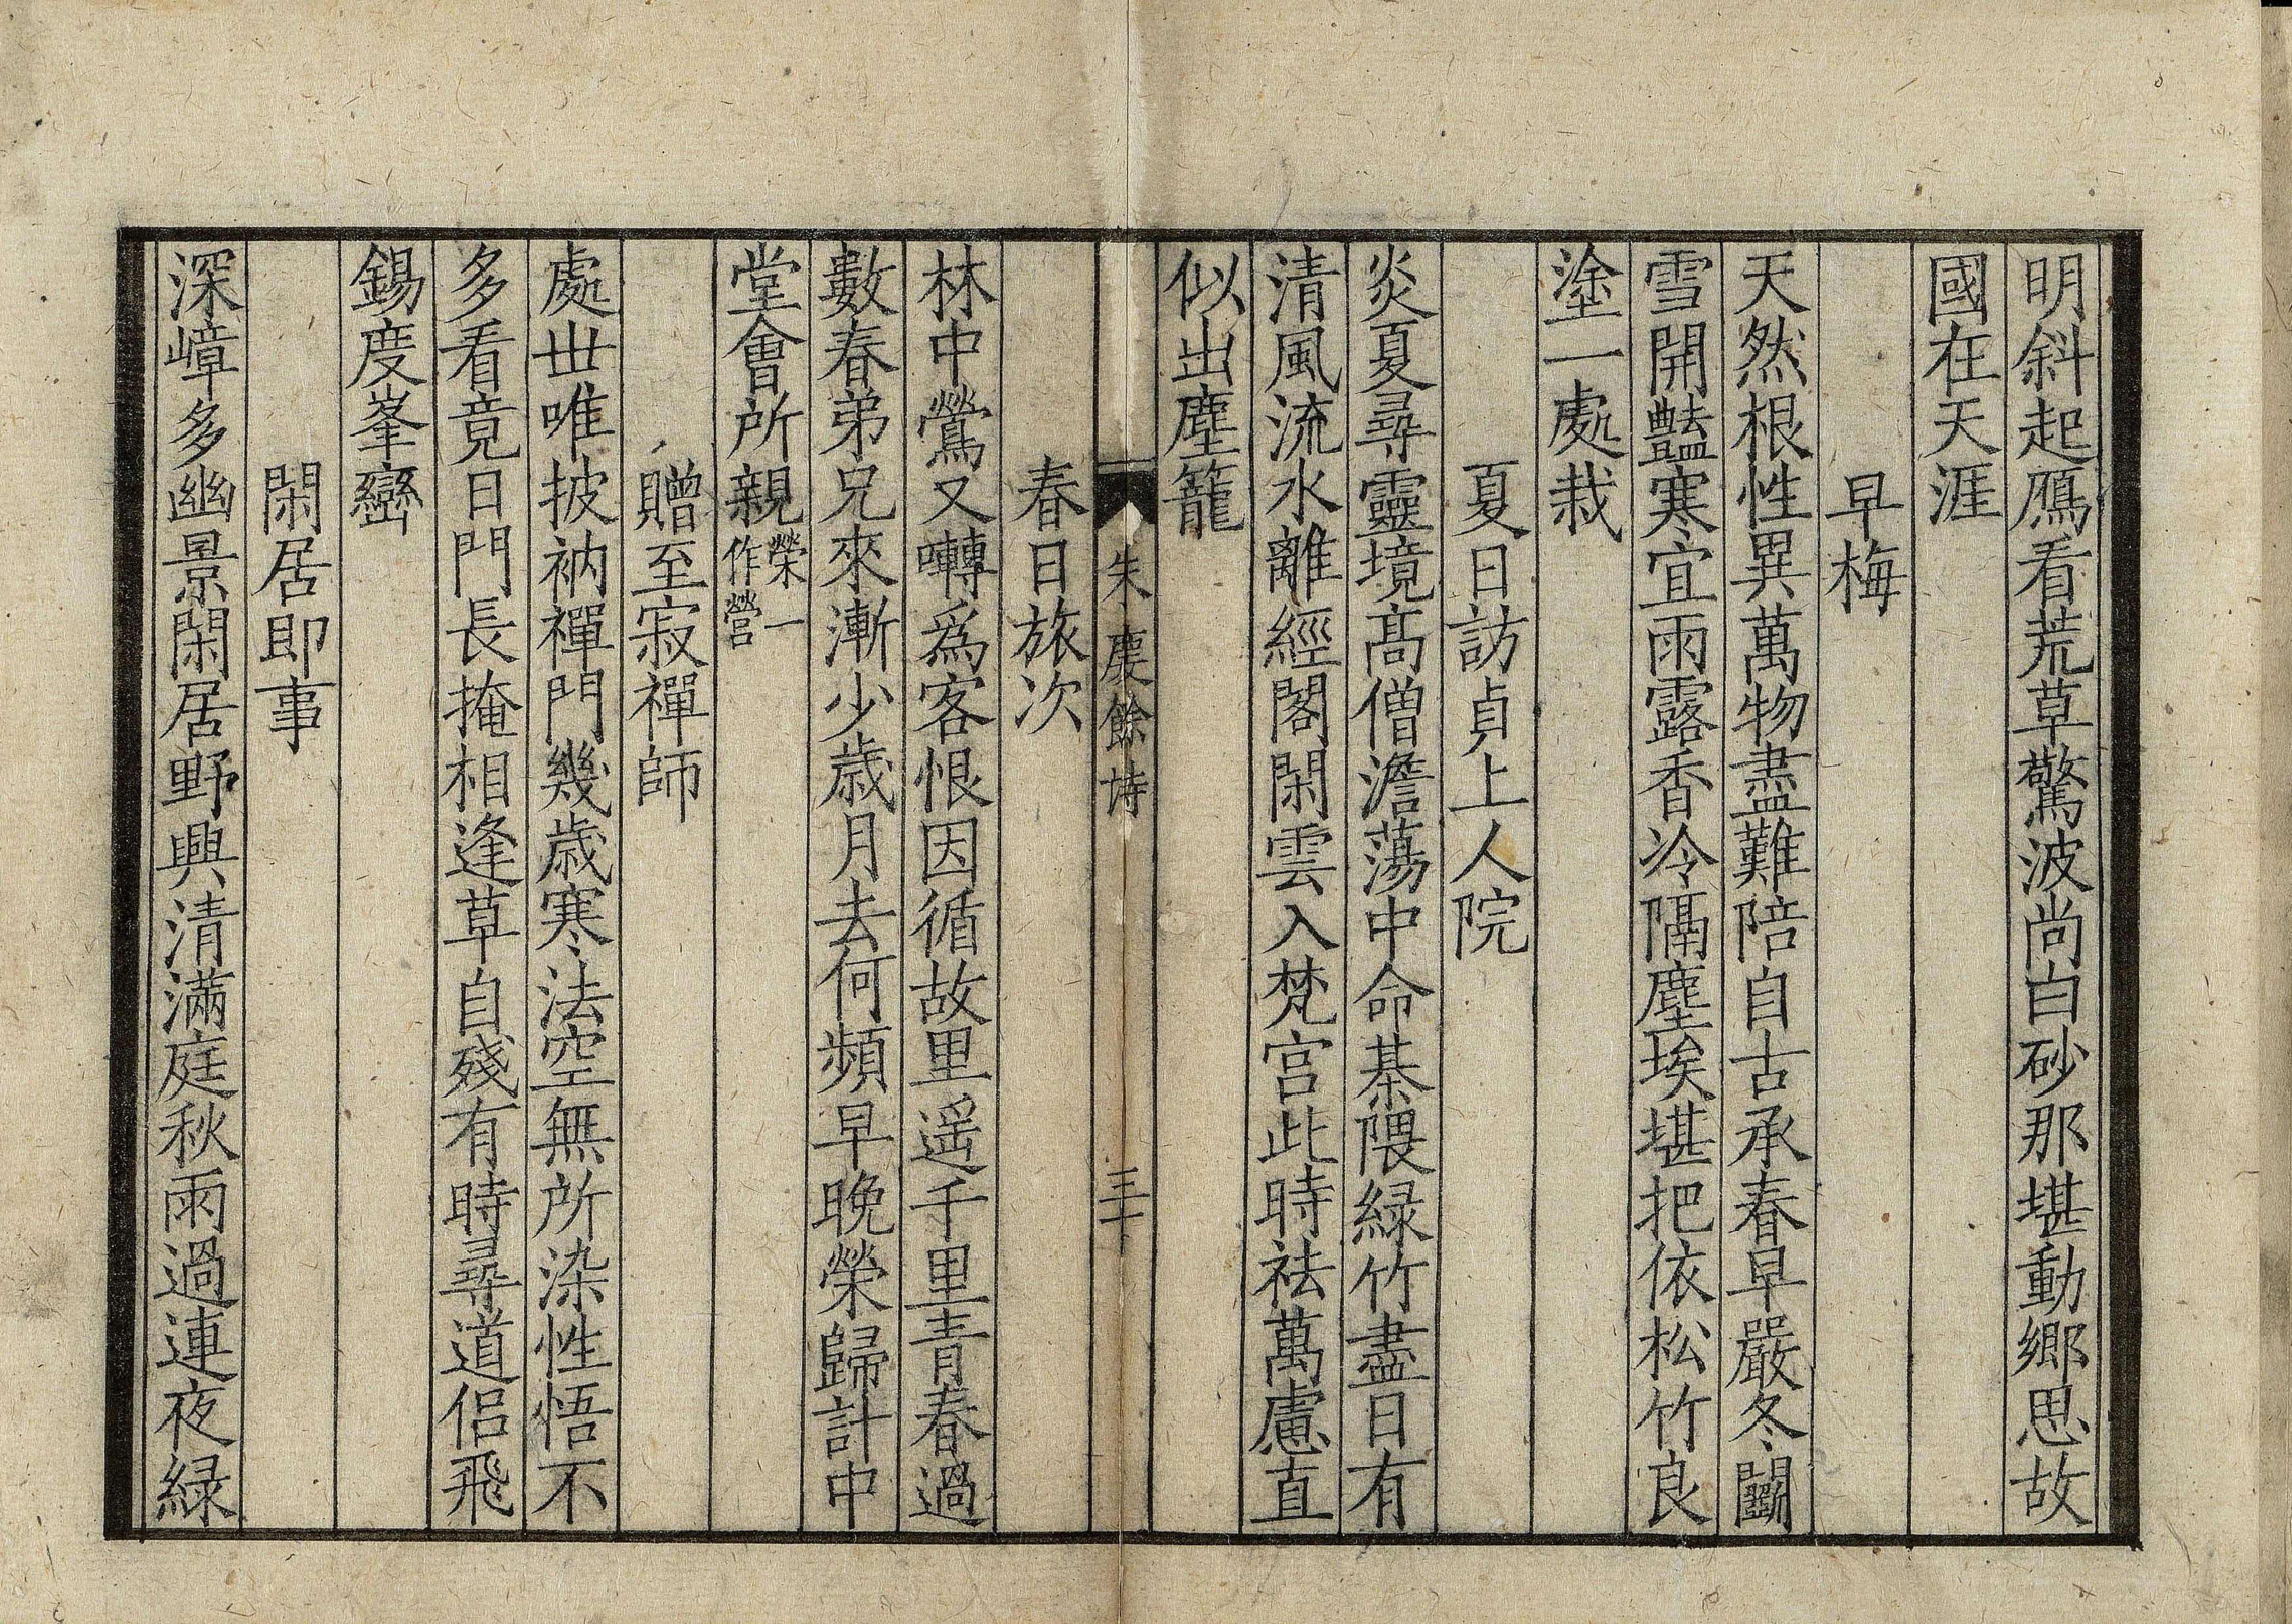 明斜起鴈看荒草驚波尚白砂那堪動鄉思故
國在天涯
早梅
天然根性異萬物盡難陪自古承春早嚴冬鬭
雪開豔寒宜雨露香冷隔塵埃堪把依松竹良
塗一處栽
夏日訪貞上人院
炎夏尋靈境高僧澹蕩中命棊隈綠竹盡日有
清風流水離經閣閑雲入梵宮此時袪萬慮直
似出塵籠
朱慶餘詩 三十
春日旅次
林中鶯又囀爲客恨因循故里遥千里青春過
數春弟兄來漸少歲月去何頻早晚榮歸計中
堂會所親榮一作營
贈至寂禪師
處世唯披衲禪門幾歲寒法空無所染性悟不
多看竟日門長掩相逢草自殘有時尋道侶飛
錫度峯巒
閑居即事
深嶂多幽景閑居野興清滿庭秋雨過連夜綠